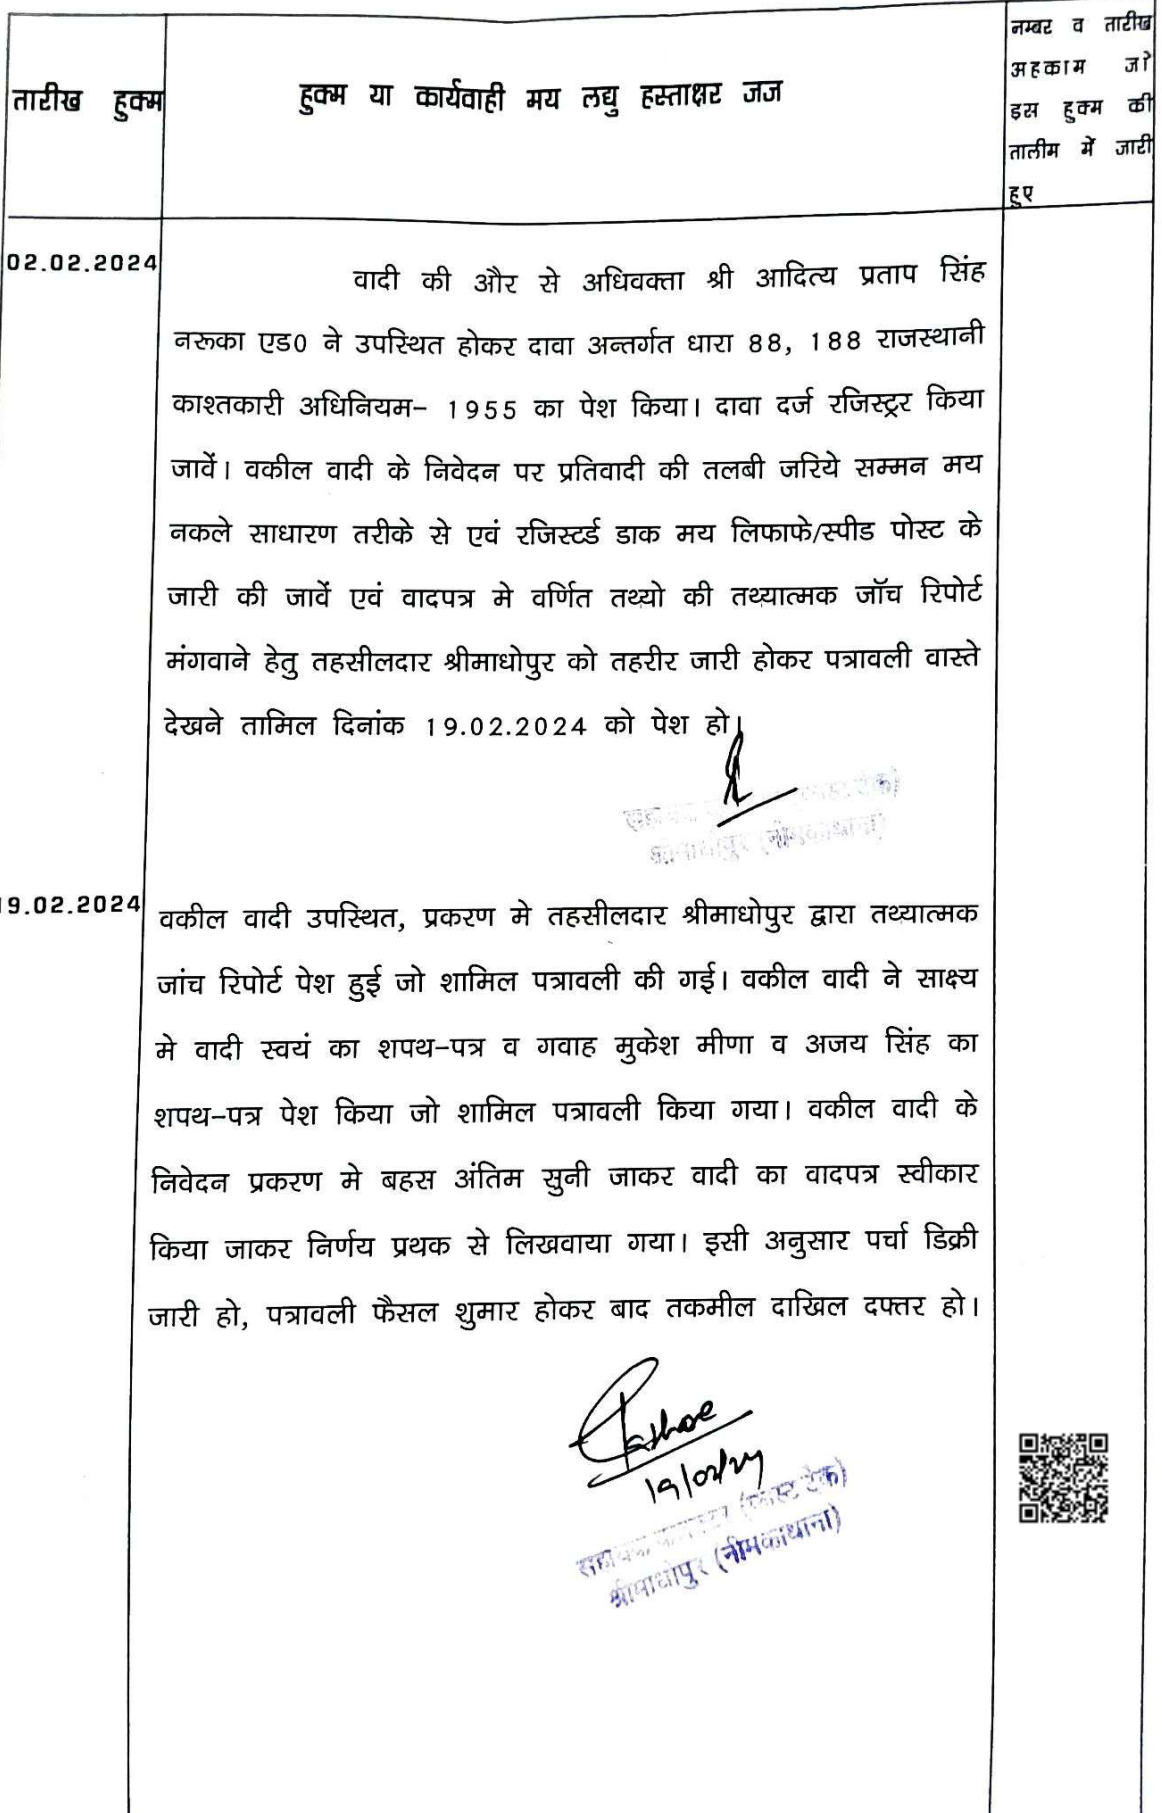 तारीख हुक्म
हुक्म या कार्यवाही मय लद्यु हस्ताक्षर जज
नम्बर व तारीख
अहकाम जो
इस हुक्म की
तालीम में जारी
हुए
02.02.2024
वादी की और से अधिवक्ता श्री आदित्य प्रताप सिंह
नरूका एड0 ने उपस्थित होकर दावा अन्तर्गत धारा 88, 188 राजस्थानी
काश्तकारी अधिनियम– 1955 का पेश किया। दावा दर्ज रजिस्ट्रर किया
जावें। वकील वादी के निवेदन पर प्रतिवादी की तलबी जरिये सम्मन मय
नकले साधारण तरीके से एवं रजिस्टर्ड डाक मय लिफाफे/स्पीड पोस्ट के
जारी की जावें एवं वादपत्र मे वर्णित तथ्यो की तथ्यात्मक जॉच रिपोर्ट
मंगवाने हेतु तहसीलदार श्रीमाधोपुर को तहरीर जारी होकर पत्रावली वास्ते
देखने तामिल दिनांक 19.02.2024 को पेश हो।
श्रीमाधोपुर (नीमकाथाना)
19.02.2024
वकील वादी उपस्थित, प्रकरण मे तहसीलदार श्रीमाधोपुर द्वारा तथ्यात्मक
जांच रिपोर्ट पेश हुई जो शामिल पत्रावली की गई। वकील वादी ने साक्ष्य
मे वादी स्वयं का शपथ–पत्र व गवाह मुकेश मीणा व अजय सिंह का
शपथ–पत्र पेश किया जो शामिल पत्रावली किया गया। वकील वादी के
निवेदन प्रकरण मे बहस अंतिम सुनी जाकर वादी का वादपत्र स्वीकार
किया जाकर निर्णय प्रथक से लिखवाया गया। इसी अनुसार पर्चा डिक्री
जारी हो, पत्रावली फैसल शुमार होकर बाद तकमील दाखिल दफ्तर हो।
19/02/24
सहायक कलक्टर (फास्ट ट्रेक)
श्रीमाधोपुर (नीमकाथाना)